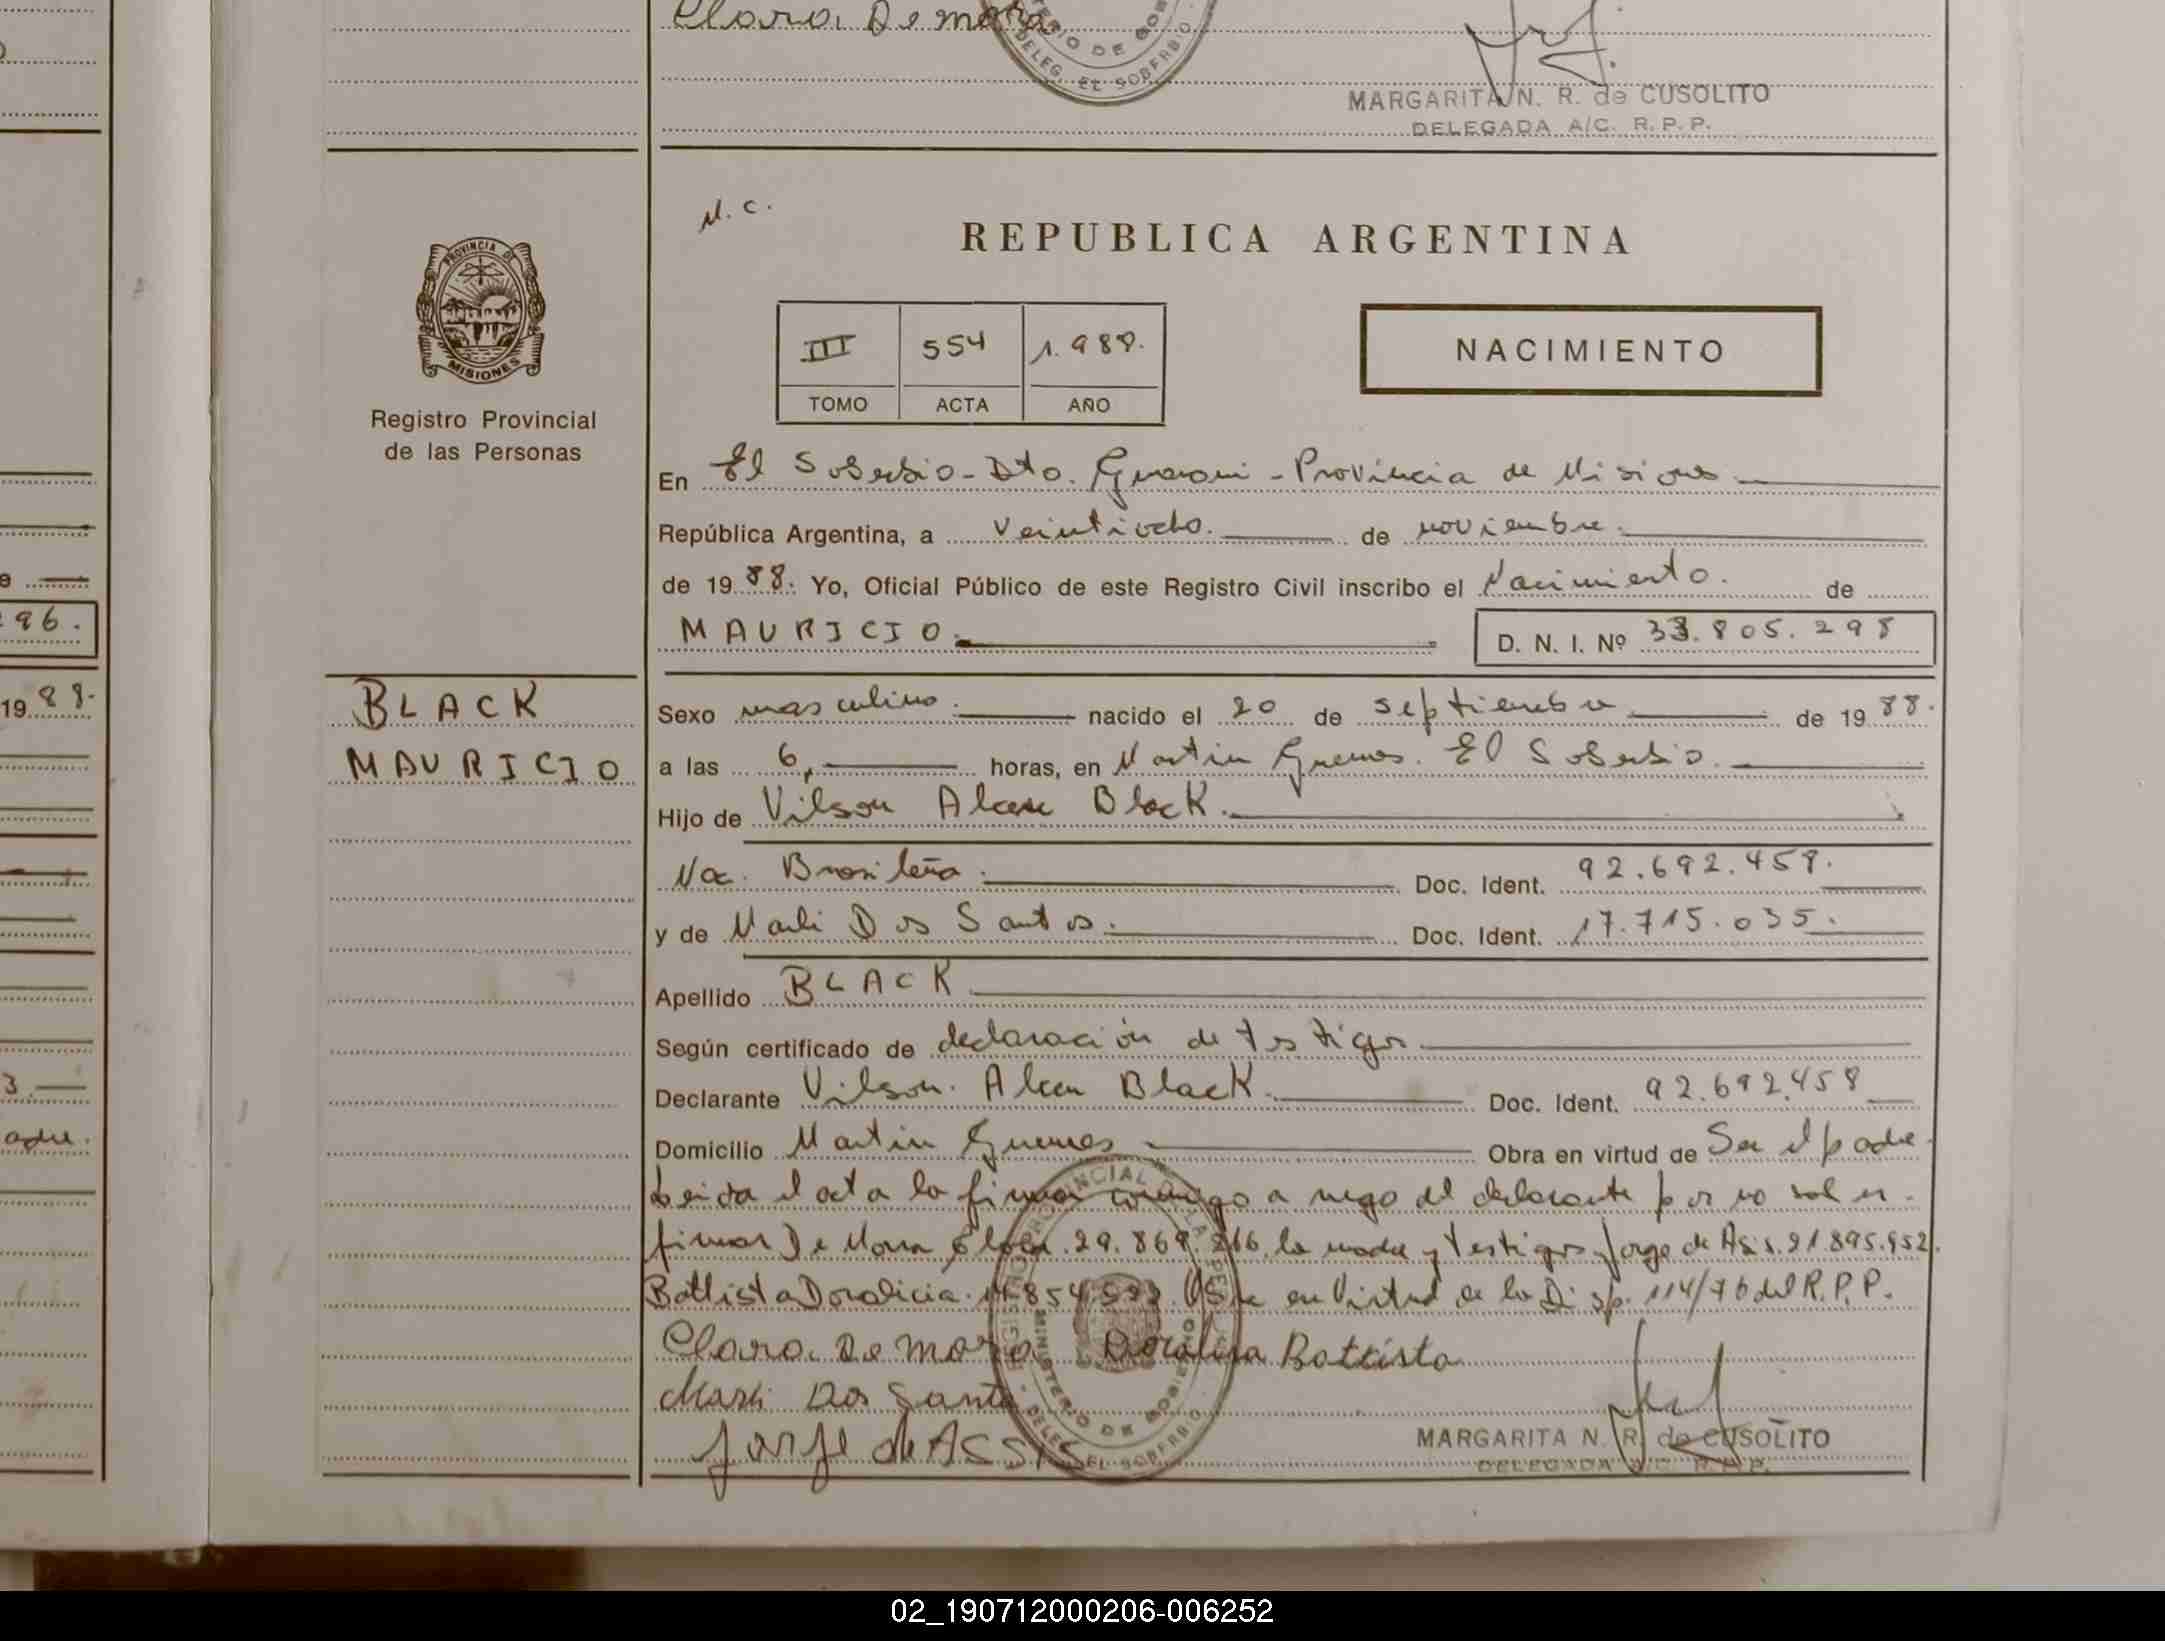 Clara De mora
MINISTERIO DE GOBIERNO
DELEG. EL SOBERBIO
MARGARITA N. R. de CUSOLITO
DELEGADA A/C. R. P. P.
N. C.
REPUBLICA ARGENTINA
PROVINCIA DE MISIONES
III 554 1.988.
TOMO ACTA AÑO
NACIMIENTO
Registro Provincial
de las Personas
En El Soberbio - Dto. Guarani - Provincia de Misiones
República Argentina, a veintiocho. de noviembre.
de 19 88. Yo, Oficial Público de este Registro Civil inscribo el Nacimiento. de
MAURICIO.
D. N. I. Nº 33.805.298
296.
1988.
BLACK
MAURICIO
Sexo masculino. nacido el 20 de septiembre de 1988.
a las 6, horas, en Martin Guemes. El Soberbio.
Hijo de Vilson Alceu Black.
Nac. Brasileña. Doc. Ident. 92.692.458.
y de Marli Dos Santos. Doc. Ident. 17.715.035.
Apellido BLACK
Según certificado de declaración de testigos
Declarante Vilson. Alceu Black. Doc. Ident. 92.692.458
Domicilio Martin Guemes Obra en virtud de Ser el padre.
Leida el acta la firman conmigo a ruego del declarante por no saber
firmar De Mora Clara. 29.869.216, la madre y testigos Jorge de Asis. 21.895.952.
Battista Doralicia. en Virtud de la Disp. 114/76 del R.P.P.
Clara. De mora Doralisa Battista
Marli Dos Santo
Jorge de ASSIS
REGISTRO PROVINCIAL DE LAS PERSONAS
MINISTERIO DE GOBIERNO
DELEG. EL SOBERBIO
MARGARITA N. R. de CUSOLITO
DELEGADA A/C. R. P. P.
02_190712000206-006252